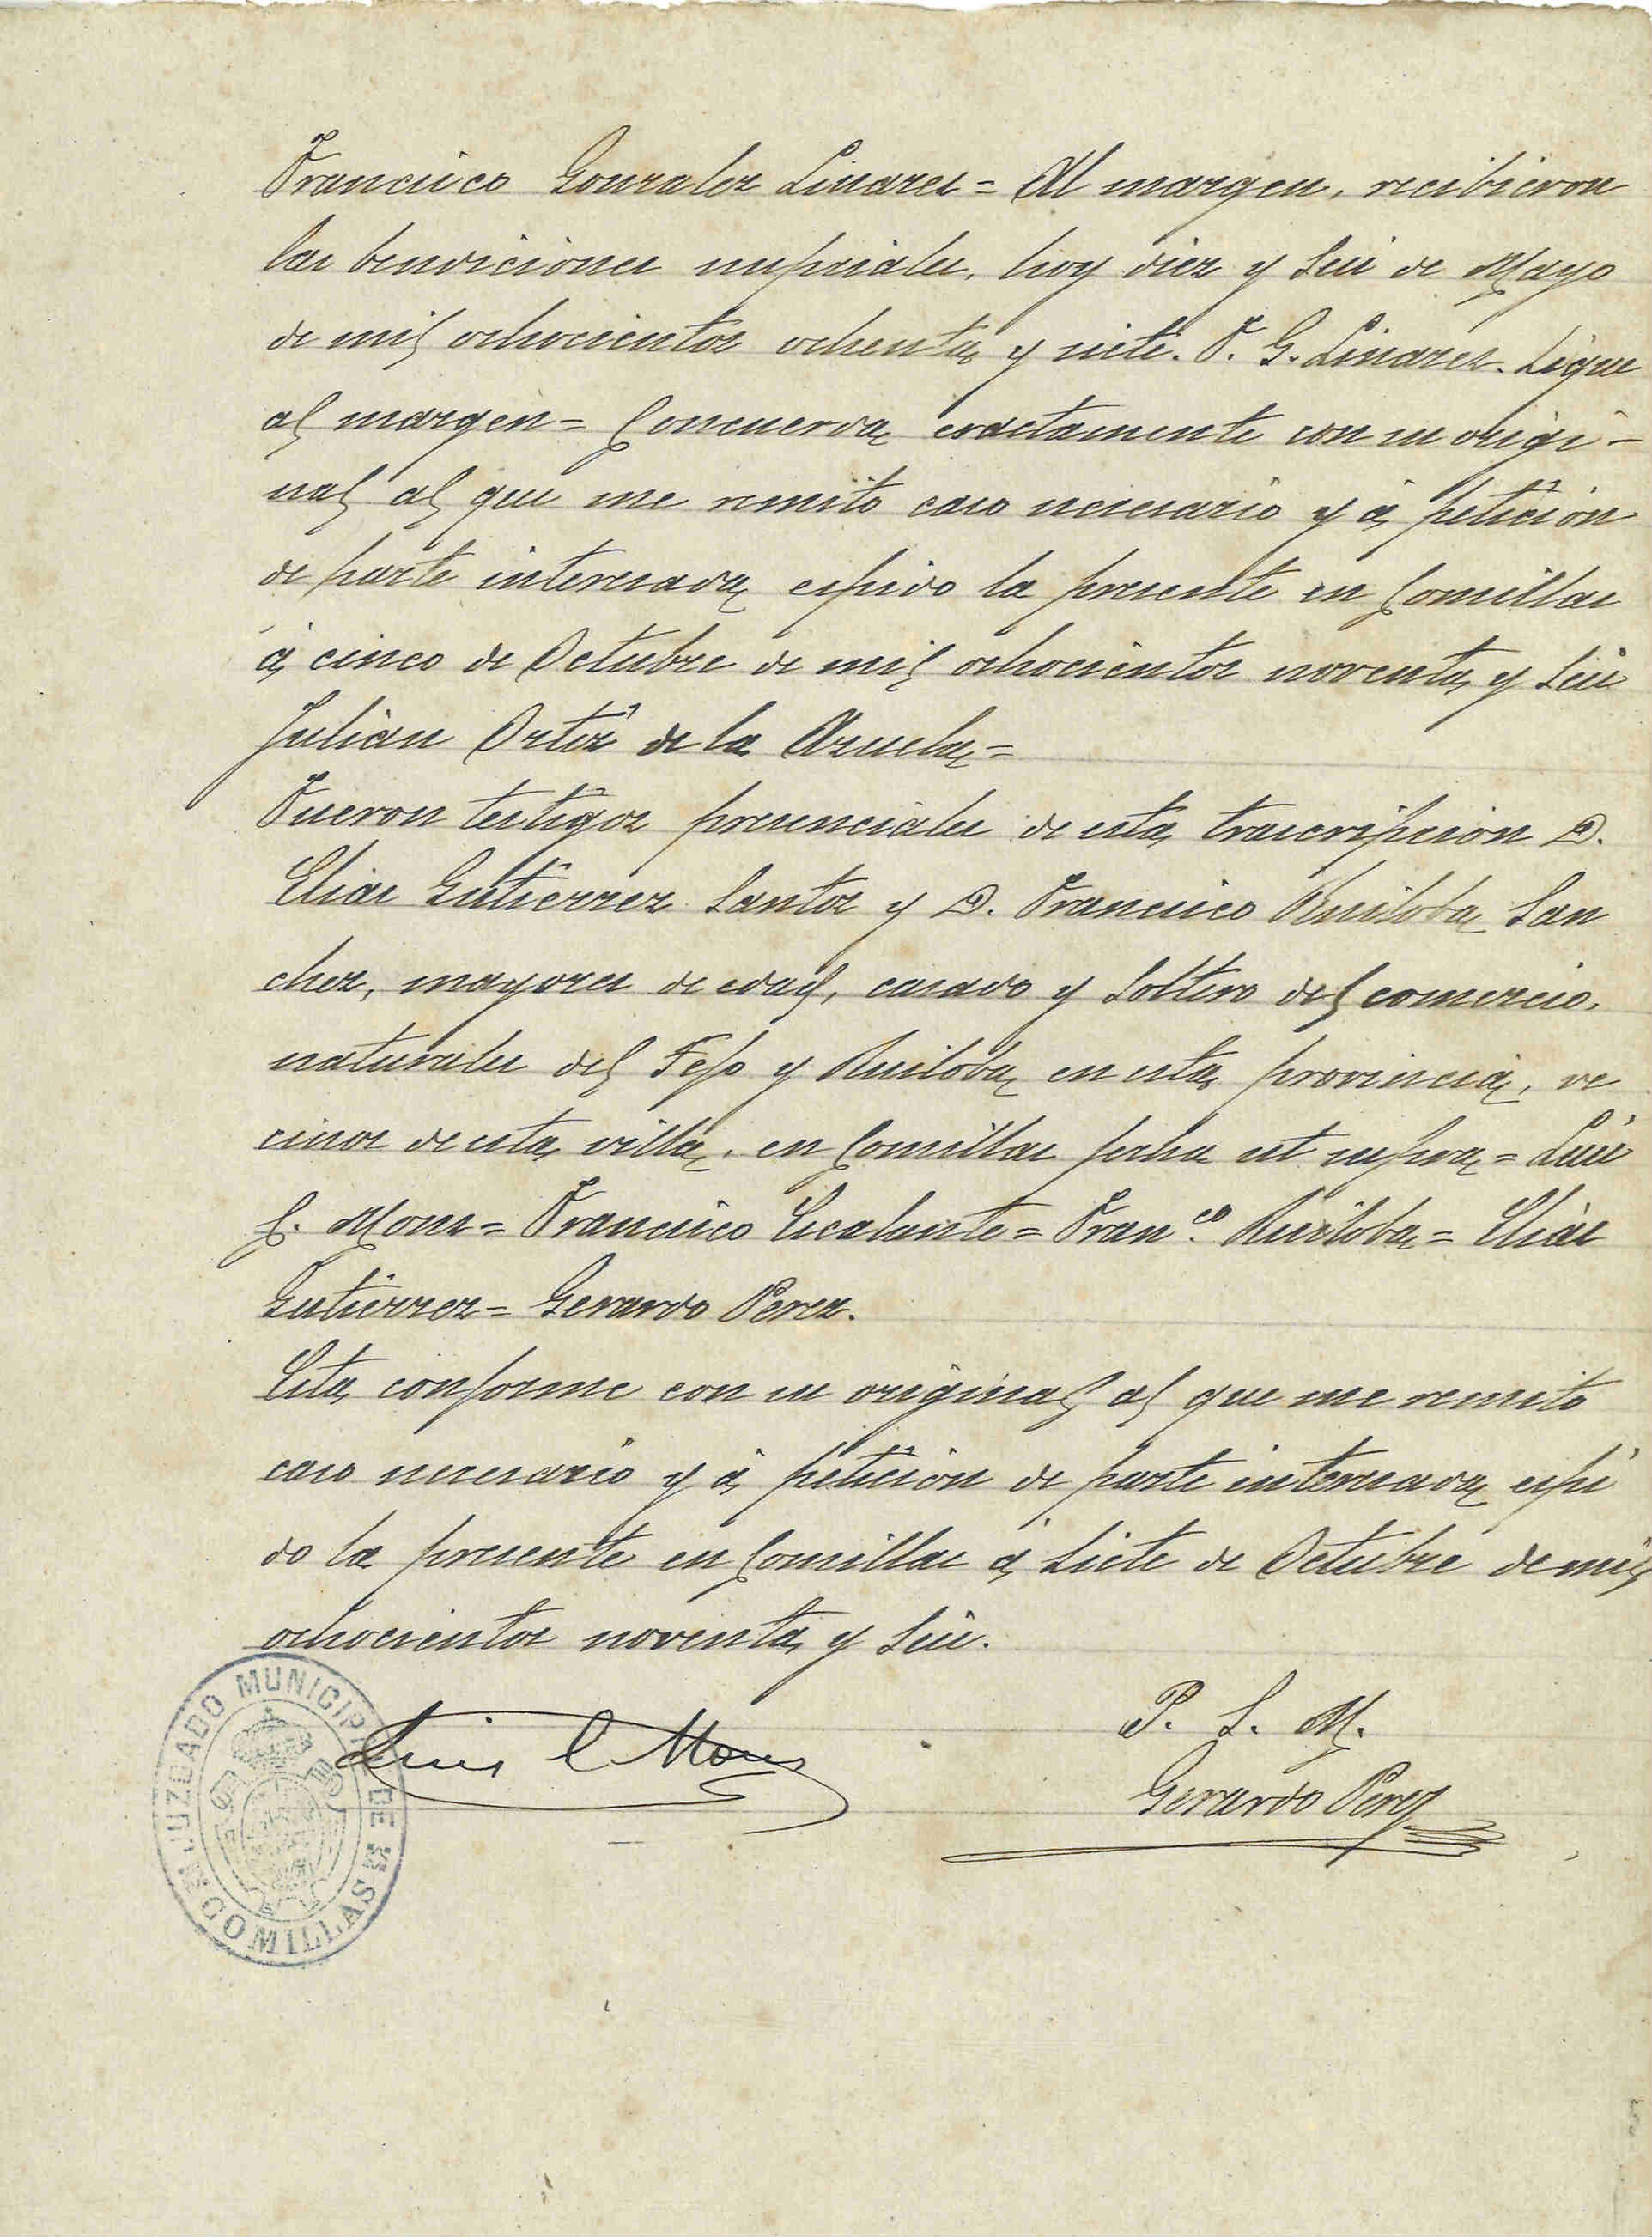 Francisco Gonzalez Linares = Al margen, recibieron
las bendiciones nupciales, hoy diez y seis de Mayo
de mil ochocientos ochenta y siete. F. G. Linares. Sigue
al margen = Concuerda exactamente con su origi-
nal al que me remito caso necesario y á petición
de parte interesada espido la presente en Comillas
á cinco de Octubre de mil ochocientos noventa y seis
Julian Ortiz de la Azuela =
Fueron testigos presenciales de esta trascripcion D.
Elias Gutierrez Santos y D. Francisco Ruiloba San
chez, mayores de edad, casado y soltero del comercio,
naturales del Tejo y Ruiloba en esta provincia, ve
cinos de esta villa, en Comillas fecha ut supra = Luis
C. Mons = Francisco Escalante = Fran.co Ruiloba = Elias
Gutierrez = Gerardo Perez.
Esta conforme con su original al que me remito
caso necesario y á petición de parte interesada espi
do la presente en Comillas á siete de Octubre de mil
ochocientos noventa y seis.
P. S. M.
Luis C Mons
Gerardo Perez
JUZGADO MUNICIPAL DE COMILLAS